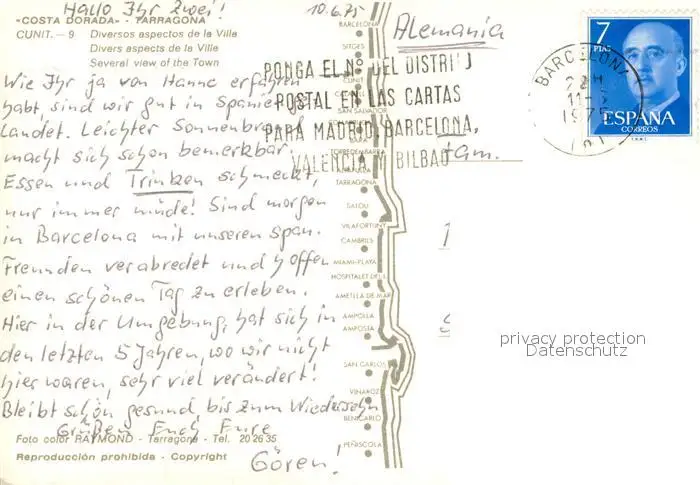 Hallo Ihr Zwei! 10.6.75
«COSTA DORADA» - TARRAGONA
CUNIT. — 9 Diversos aspectos de la Villa
Divers aspects de la Ville
Several view of the Town
Wie Ihr ja von Hanne erfahren
habt, sind wir gut in Spanien ge-
landet. Leichter Sonnenbrand
macht sich schon bemerkbar.
Essen und Trinken schmeckt,
nur immer müde! Sind morgen
in Barcelona mit unseren Span.
Freunden verabredet und hoffen
einen schönen Tag zu erleben.
Hier in der Umgebung, hat sich in
den letzten 5 Jahren, wo wir nicht
hier waren, sehr viel verändert!
Bleibt schön gesund, bis zum Wiedersehn
Grüßen Euch Eure
Gören!
Foto color RAYMOND - Tarragona - Tel. 20 26 35
Reproducción prohibida - Copyright
BARCELONA
SITGES
CUNIT
SAN SALVADOR
TORREDEMBARRA
TARRAGONA
SALOU
VILAFORTUNY
CAMBRILS
MIAMI-PLAYA
HOSPITALET DEL I.
AMETLLA DE MAR
AMPOLLA
AMPOSTA
SAN CARLOS
VINAROZ
BENICARLO
PEÑISCOLA
Alemania
PONGA EL Nº DEL DISTRITO
POSTAL EN LAS CARTAS
PARA MADRID, BARCELONA,
VALENCIA Y BILBAO
Fam.
BARCELONA
1975
7
PTAS
ESPAÑA
CORREOS
privacy protection
Datenschutz